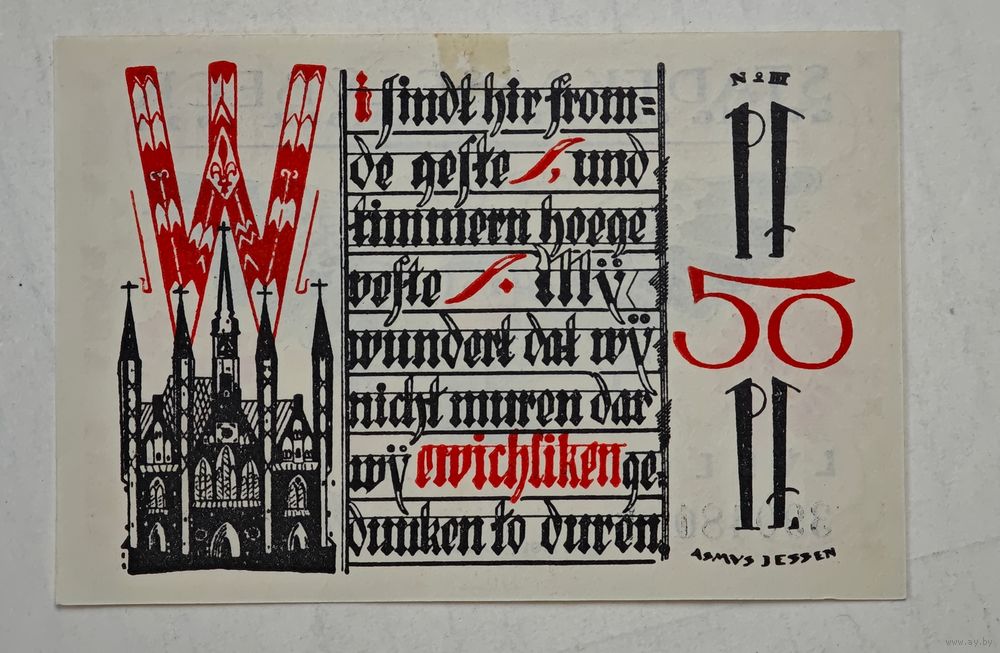 Wi sindt hir from=
de geste, und
timmern hoege
veste. My̎
wundert dat wÿ
nicht muren dar
wÿ ewichliken ge=
dunken to duren
No III
Pf
50
Pf
ASMVS JESSEN
www.ay.by